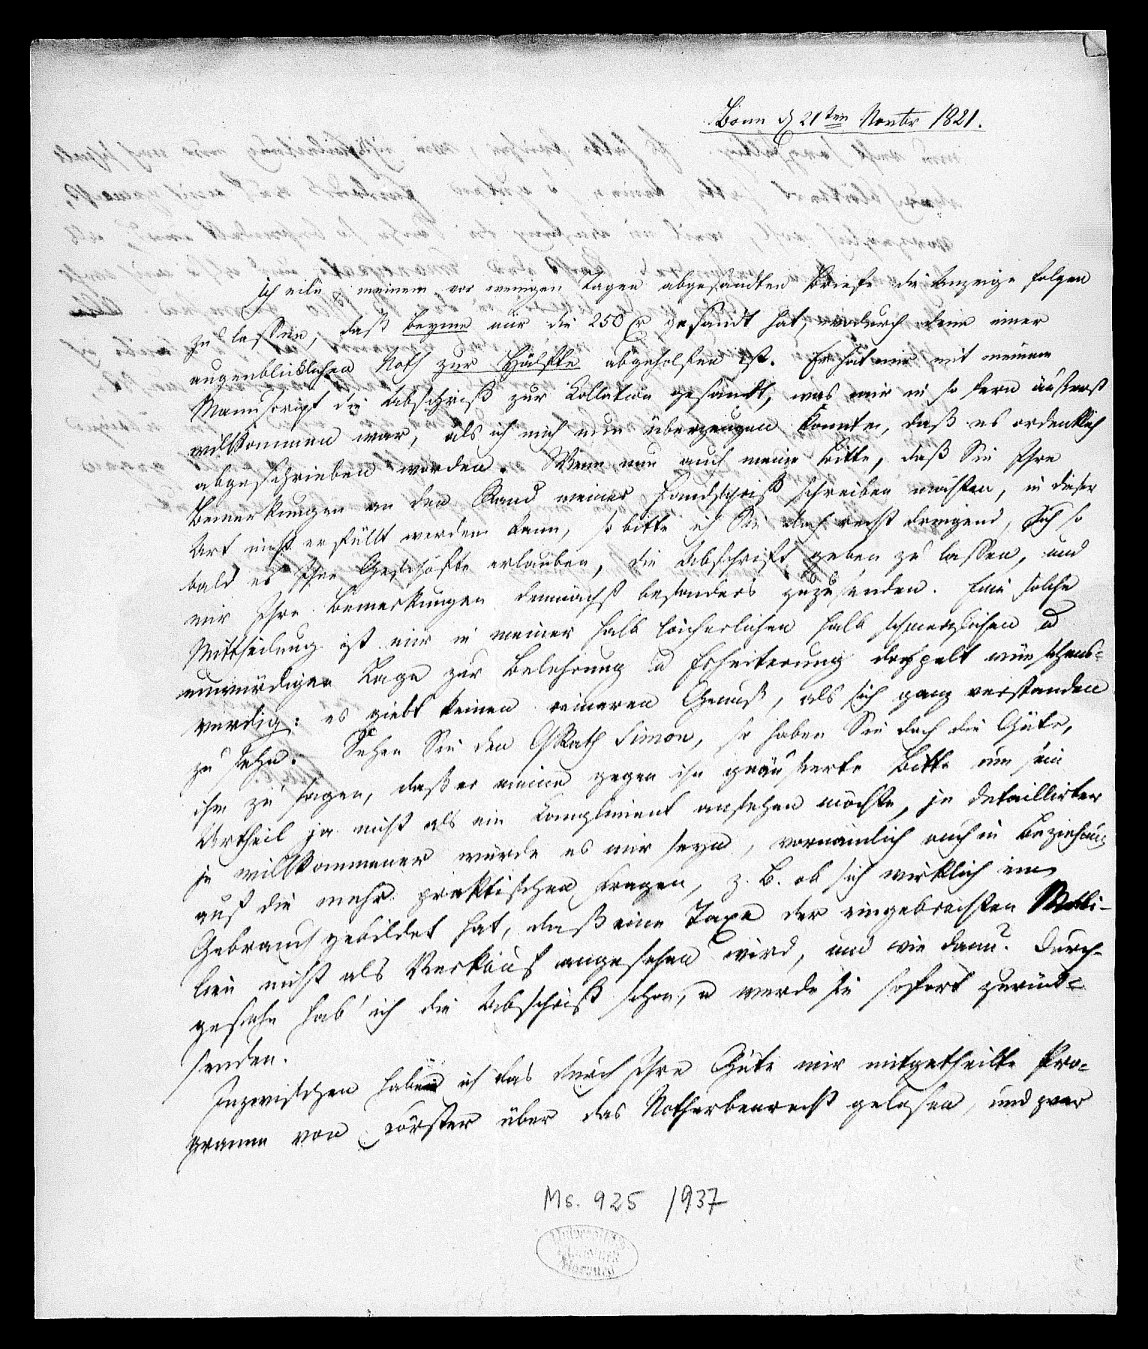 Bonn d 21ten Novbr 1821.
Ich eile meinem vor wenigen Tagen abgesandten Briefe die Anzeige folgen
zu lassen, daß Beyme nur die 250 gesandt hat, wodurch denn meiner
augenblicklichen Noth zur Hälfte abgeholfen ist. Er hat mir mit meinem
Manuscript die Abschrift zur Collation gesandt, was mir in so fern äußerst
willkommen war, als ich mich nun überzeugen konnte, daß es ordentlich
abgeschrieben worden. Wenn nun auch meine Bitte, daß Sie Ihre
Bemerkungen an den Rand meiner Handschrift schreiben möchten, in dieser
Art nicht erfüllt werden kann, so bitte ich Sie doch recht dringend, sich so
bald es Ihre Geschäfte erlauben, die Abschrift geben zu lassen, und
mir Ihre Bemerkungen demnächst besonders zuzusenden. Eine solche
Mittheilung ist mir in meiner halb lächerlichen halb schmerzlichen u
unwürdigen Lage zur Belehrung u Erheiterung doppelt wünschens-
werdig: es giebt keinen reineren Genuß, als sich ganz verstanden
zu sehn. Sehen Sie den GRath Simon, so haben Sie doch die Güte,
ihm zu sagen, daß er meine gegen ihn geäußerte Bitte um sein
Urtheil ja nicht als ein Compliment ansehen möchte, je detaillirter
je willkommener würde es mir seyn, vornämlich auch in Beziehung
auf die mehr praktischen Fragen, z. B. ob sich wirklich im
Gebrauch gebildet hat, daß eine Taxe der eingebrachten Mobi-
lien nicht als Verkauf angesehen wird, und wie dann. Durch-
gesehn hab' ich die Abschrift schon, u werde sie sofort zurück-
senden.
Inzwischen habe ich das durch Ihre Güte mir mitgetheilte Pro-
gramm von Förster über das Notherbenrecht gelesen, und zwar
Ms. 925 /937